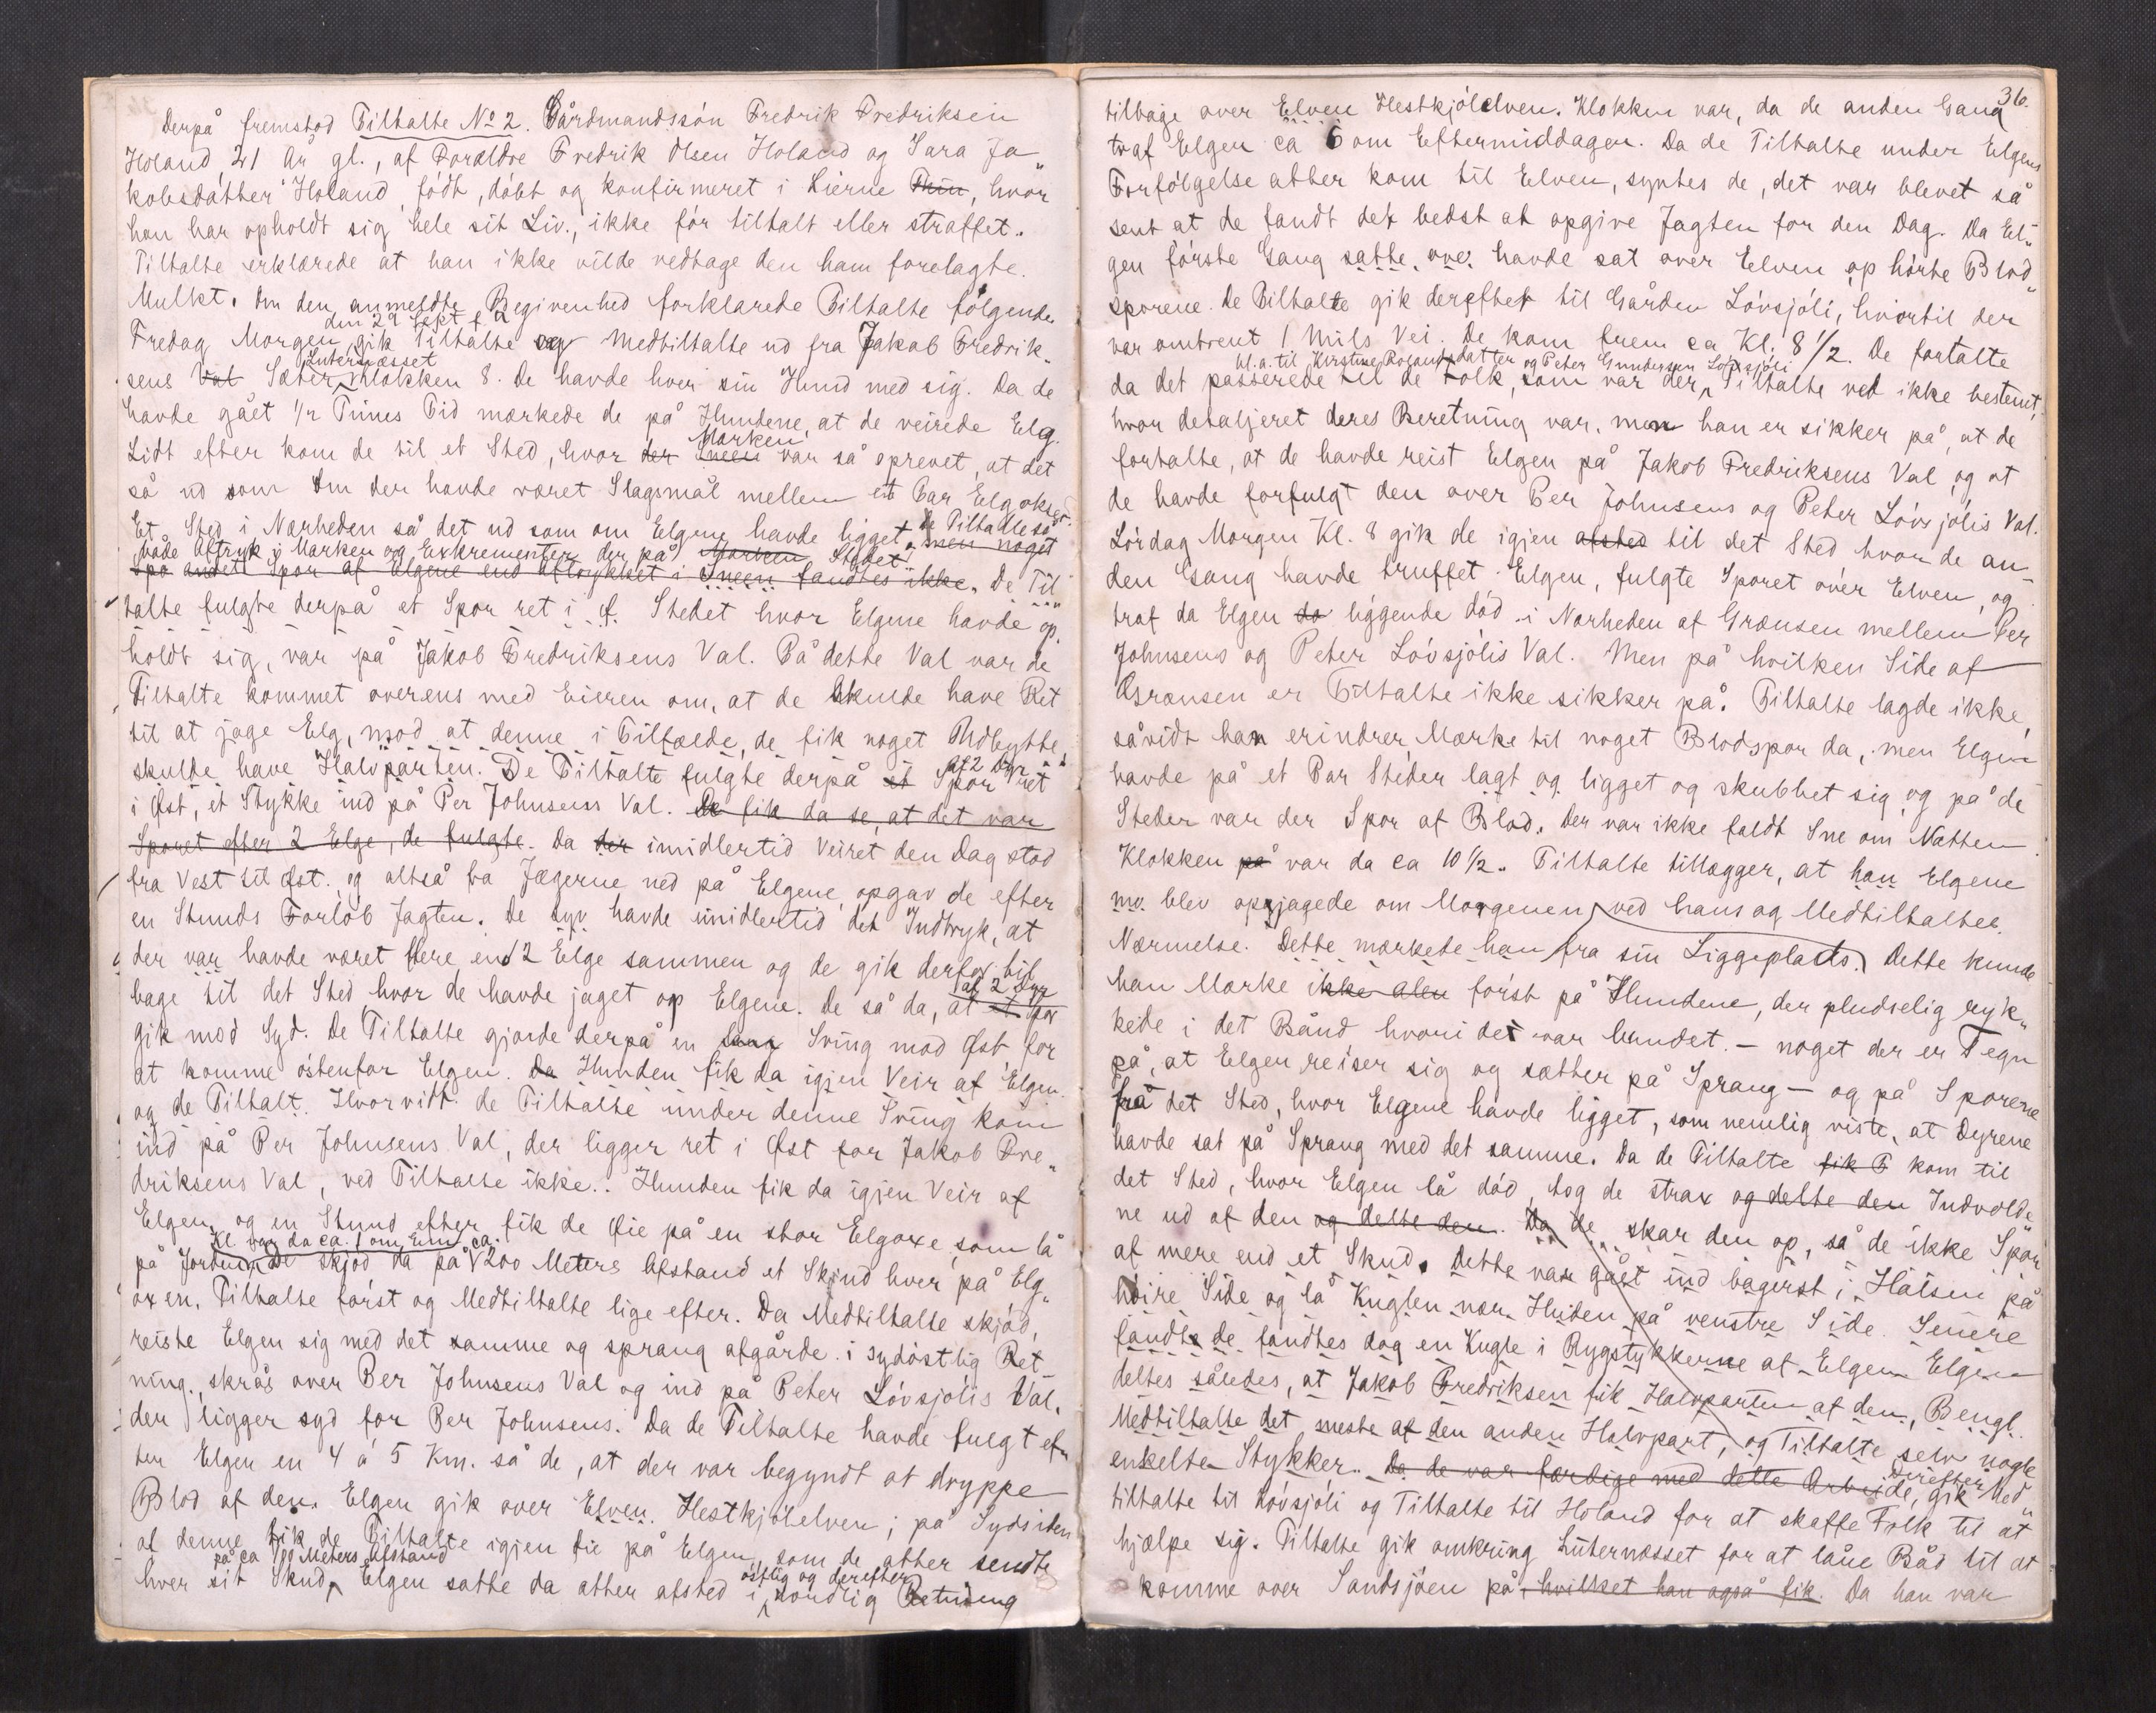 Derpå fremstod Tiltalte No 2. Gårdmandssön Fredrik Fredriksen
Holand, 21 År gl., af Forældre Fredrik Olsen Holand og Sara Ja„
kobsdatter Holand, födt, döbt og konfirmeret i Lierne, hvor
han har opholdt sig hele sit Liv., ikke för tiltalt eller straffet.
Tiltalte erklærede at han ikke vilde vedtage den ham forelagte
Mulkt. Om den anmeldte Begivenhed forklarede Tiltalte fölgende.
den 29 Sept f. A.
Fredag Morgen gik Tiltalte og Medtiltalte ud fra Jakob Fredrik„
Luternæsset
sens Val Sæter Klokken 8. De havde hver sin Hund med sig. Da de
havde gået 1/2 Times Tid mærkede de på Hundene, at de veirede Elg.
Marken
Lidt efter kom de til et Sted, hvor der Sneen var så oprevet, at det
så ud som om der havde været Slagsmål mellem et Par Elgokser.
Et Sted i Nærheden så det ud som om Elgene havde ligget, de Tiltalte så men noget
både Aftryk i Marken og Exkrementer der på Marken Stedet.
Spo andet Spor af Elgene end Aftrykket i Sneen fandtes ikke. De Til„
talte fulgte derpå et Spor ret i Ø. Stedet hvor Elgene havde op„
holdt sig, var på Jakob Fredriksens Val. På dette Val var de
Tiltalte kommet overens med Eieren om, at de skulde have Ret
til at jage Elg, mod at denne i Tilfælde, de fik noget Udbytte,
skulde have Halvparten. De Tiltalte fulgte derpå et Spor af 2 Dyr ret
i Øst, et Stykke ind på Per Johnsens Val. De fik da se, at det var
Sporet efter 2 Elge, de fulgte. Da der imidlertid Veiret den Dag stod
fra Vest til Øst, og altså fra Jægerne ned på Elgene, opgav de efter
en Stunds Forlöb Jagten. De syv havde imidlertid det Indtryk, at
der var havde været flere end 2 Elge sammen og de gik derfor til„
bage til det Sted hvor de havde jaget op Elgene. De så da, at et Spor af 2 Dyr
gik mod Syd. De Tiltalte gjorde derpå en Sving mod Øst for
at komme östenfor Elgen. Da Hunden fik da igjen Veir af Elgen.
og de Tiltalt. Hvorvidt de Tiltalte under denne Sving kom
ind på Per Johnsens Val, der ligger ret i Øst for Jakob Fre„
driksens Val, ved Tiltalte ikke. Hunden fik da igjen Veir af
Elgen, og en Stund efter fik de Øie på en stor Elgoxe, som lå
Kl. var da ca. 1 om Em. ca.
på Jorden. De skjöd da på 200 Meters Afstand et Skjud hver på Elg„
oxen, Tiltalte först og Medtiltalte lige efter. Da Medtiltalte skjöd,
reiste Elgen sig med det samme og sprang afgårde i sydöstlig Ret
ning, skrås over Per Johnsens Val og ind på Peter Lövsjölis Val,
der ligger syd for Per Johnsens. Da de Tiltalte havde fulgt ef„
ter Elgen en 4 à 5 Km. så de, at der var begyndt at dryppe
Blod af den. Elgen gik over Elven Hestkjölelven; på Sydsiden
af denne fik de Tiltalte igjen Øie på Elgen, som de atter sendte
på ca 100 Meters Afstand
hver sit Skud, Elgen satte da atter afsted i östlig og derefter nordlig Retning
36.
tilbage over Elven Hestkjölelven. Klokken var, da de anden Gang
traf Elgen ca 6 om Eftermiddagen. Da de Tiltalte under Elgens
Forfölgelse atter kom til Elven, syntes de, det var blevet så
sent at de fandt det bedst at opgive Jagten for den Dag. Da El„
gen förste Gang satte over havde sat over Elven ophörte Blod„
sporene. De Tiltalte gik derefter til Gården Lövsjöli, hvortil der
var omtrent 1 Mils Vei. De kom frem ca Kl. 8 1/2. De fortalte
bl.a. til Kirstine Rolandsdatter og Peter Gundersen Lövsjöli
da det passerede til de Folk, som var der, Tiltalte ved ikke bestemt,
hvor detaljeret deres Beretning var, men han er sikker på, at de
fortalte, at de havde reist Elgen på Jakob Fredriksens Val, og at
de havde forfulgt den over Per Johnsens og Peter Lövsjölis Val.
Lördag Morgen Kl. 8 gik de igjen afsted til det Sted hvor de an„
den Gang havde truffet Elgen, fulgte Sporet over Elven, og
traf da Elgen da liggende död i Nærheden af Grænsen mellem Per
Johnsens og Peter Lövsjölis Val. Men på hvilken Side af
Grænsen er Tiltalte ikke sikker på. Tiltalte lagde ikke,
såvidt han erindrer, Mærke til noget Blodspor da, men Elgen
havde på et Par Steder lagt og ligget og skubbet sig og på de
Steder var der Spor af Blod. Der var ikke faldt Sne om Natten.
Klokken på var da ca 10 1/2. Tiltalte tillægger, at han Elgene
mo. blev opjagede om Morgenen ved hans og Medtiltaltes
Nærmelse. Dette mærkede han fra sin Liggeplads. Dette kunde
han Mærke ikke alen först på Hundene, der pludselig ryk„
kede i det Bånd hvori det var bundet. — noget der er Tegn
på, at Elgen reiser sig og sætter på Sprang — og på Sporene
fra det Sted, hvor Elgene havde ligget, som nemlig viste, at Dyrene
havde sat på Sprang med det samme. Da de Tiltalte fik B kom til
det Sted, hvor Elgen lå död, tog de strax og delte den Indvolde„
ne ud af den og delte den. Da de skar den op, så de ikke Spor
af mere end et Skud. Dette var gået ind bagerst i Halsen på
höire Side og lå Kuglen nær Huden på venstre Side. Senere
fandts de fandtes dog en Kugle i Rygstykkerne af Elgen. Elgen
deltes således, at Jakob Fredriksen fik Halvparten af den, Bengt
Medtiltalte det meste af den anden Halvpart, og Tiltalte selv nogle
enkelte Stykker. Da de var færdige med dette Arbeide, gik Derefter Med„
tiltalte til Lövsjöli og Tiltalte til Holand for at skaffe Folk til at
hjælpe sig. Tiltalte gik omkring Luternæsset for at låne Båd til at
komme over Sandsjöen på, hvilket han også fik. Da han var